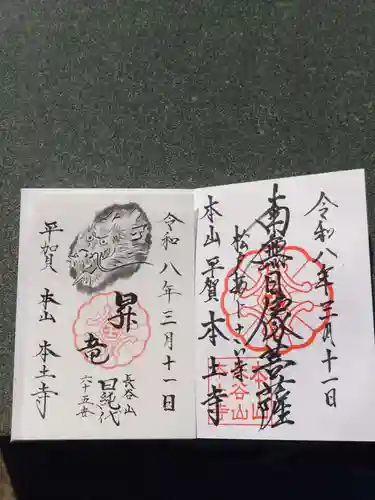 令和八年三月十一日
南無日像菩薩
本山 平賀 本土寺
本山
長谷山
令和八年三月十一日
昇竜
長谷山
六十五世
平賀 本山 本土寺